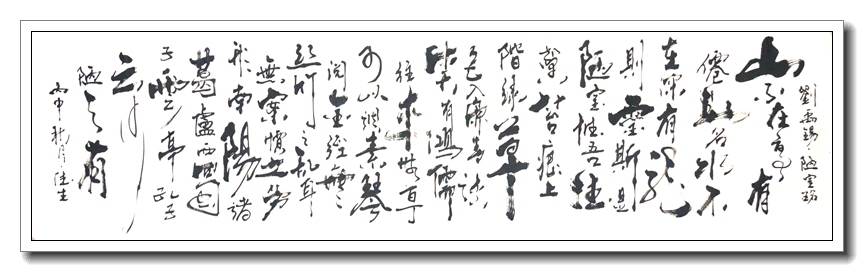 劉禹錫陋室銘
山不在高有
僊則名水不
在深有龍
則靈斯是
陋室惟吾德
馨苔痕上
階綠草
色入簾青談
笑有鴻儒
往來無白丁
可以調素琴
閱金經無
絲竹之亂耳
無案牘之勞
形南陽諸
葛廬西蜀
子雲亭孔子
云何
陋之有
丙申秋月